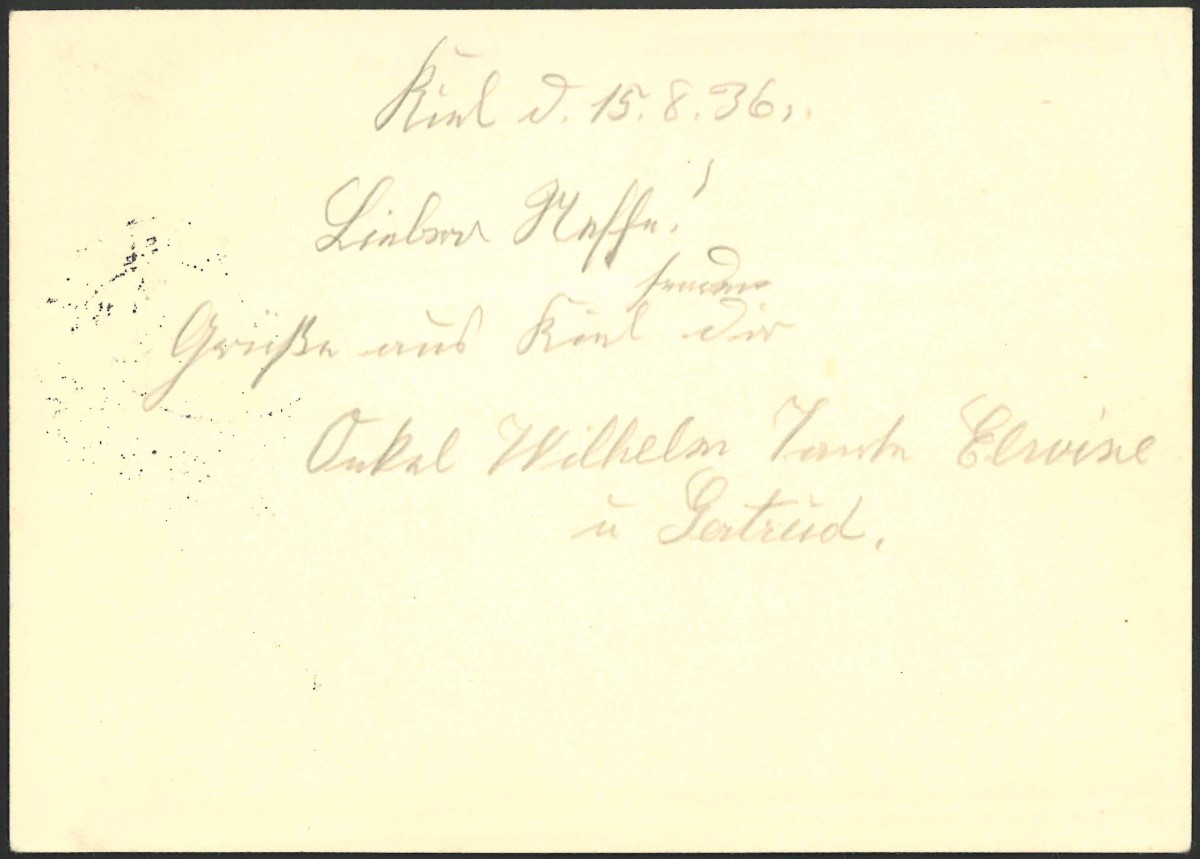 Kiel d. 15.8.36.
Lieber Neffe!
senden
Grüße aus Kiel dir
Onkel Wilhelm Tante
u Gertrud.